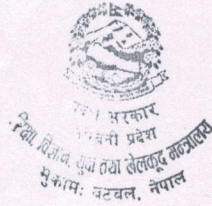 सरकार
प्रदेश
शिक्षा, विज्ञान, युवा तथा खेलकुद मन्त्रालय
मुकामः बुटवल, नेपाल